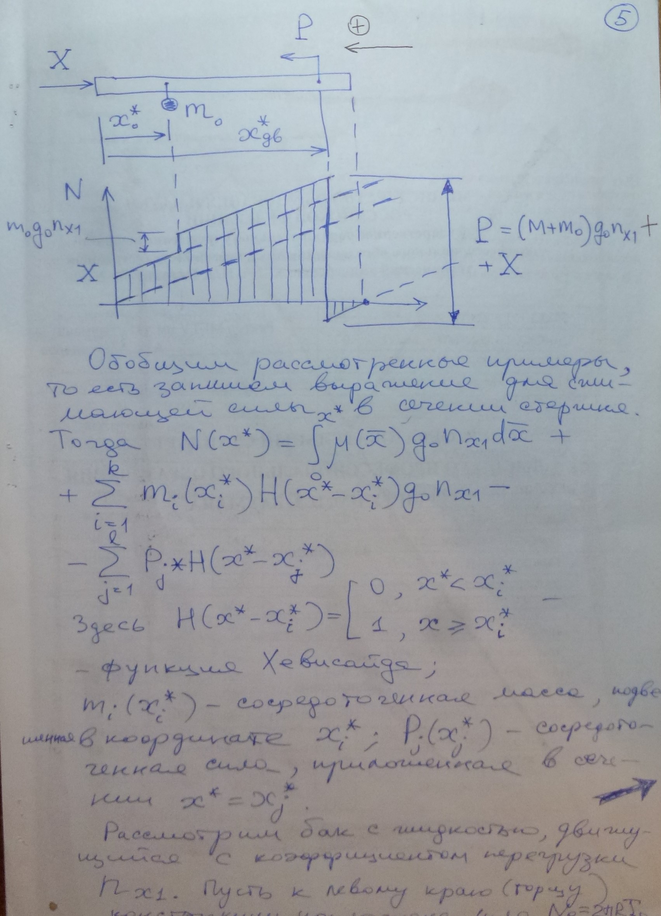 5
P +
X
x₀* m₀
x*дв
N
m₀g₀nₓ₁
P = (M+m₀)g₀nₓ₁ +
X + X
Обобщим рассмотренные примеры,
то есть запишем выражение для сжи-
мающей силы в сечении стержня.
Тогда N(x*) = ∫₀^{x*} μ(x̄) g₀nₓ₁dx̄ +
+ ∑_{i=1}^{k} mᵢ(xᵢ*) H(x*-xᵢ*)g₀nₓ₁ -
- ∑_{j=1}^{l} Pⱼ*H(x*-xⱼ*)
Здесь H(x*-xᵢ*) = [ 0, x* < xᵢ*
1, x ⩾ xᵢ* -
- функция Хевисайда;
mᵢ(xᵢ*) - сосредоточенная масса, подве
шенная в координате xᵢ*; Pⱼ(xⱼ*) - сосредото-
ченная сила, приложенная в сече-
нии x* = xⱼ*.
Рассмотрим бак с жидкостью, движу-
щийся с коэффициентом перегрузки
nₓ₁. Пусть к левому краю (торцу)